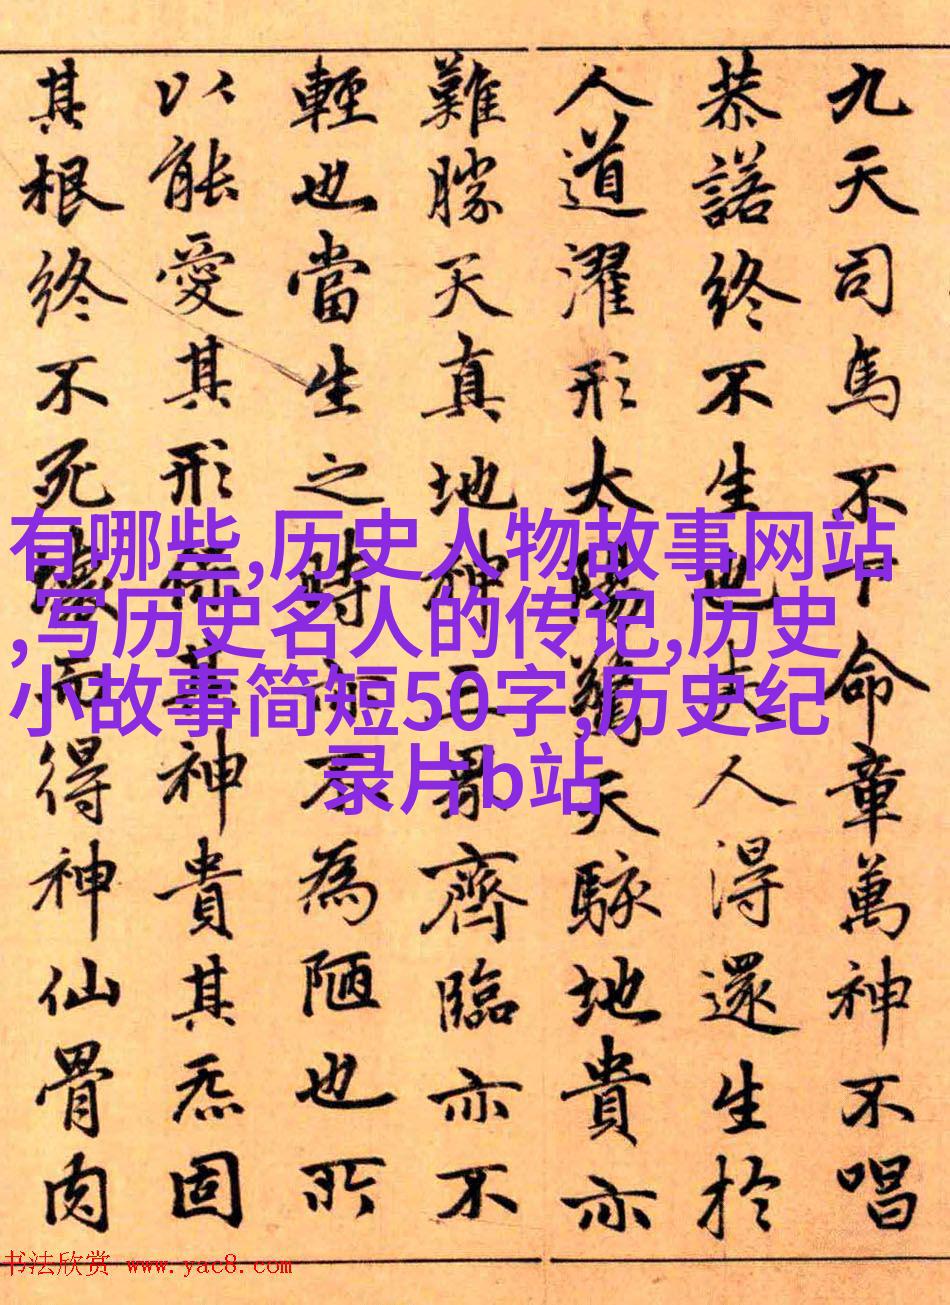 九天司馬不下命章萬神不唱
恭諾終不生也夫人得還生於
人道濯形太陽驚天駭地貴亦
難勝天真地神三界齊臨亦不
輕也當生之時亦不為陋也所
以能愛其形保其神貴其炁固
其根終不死壞而得神仙骨肉
有哪些,历史人物故事网站
,写历史名人的传记,历史
小故事简短50字,历史纪
录片b站
书法欣赏 www.yac8.com